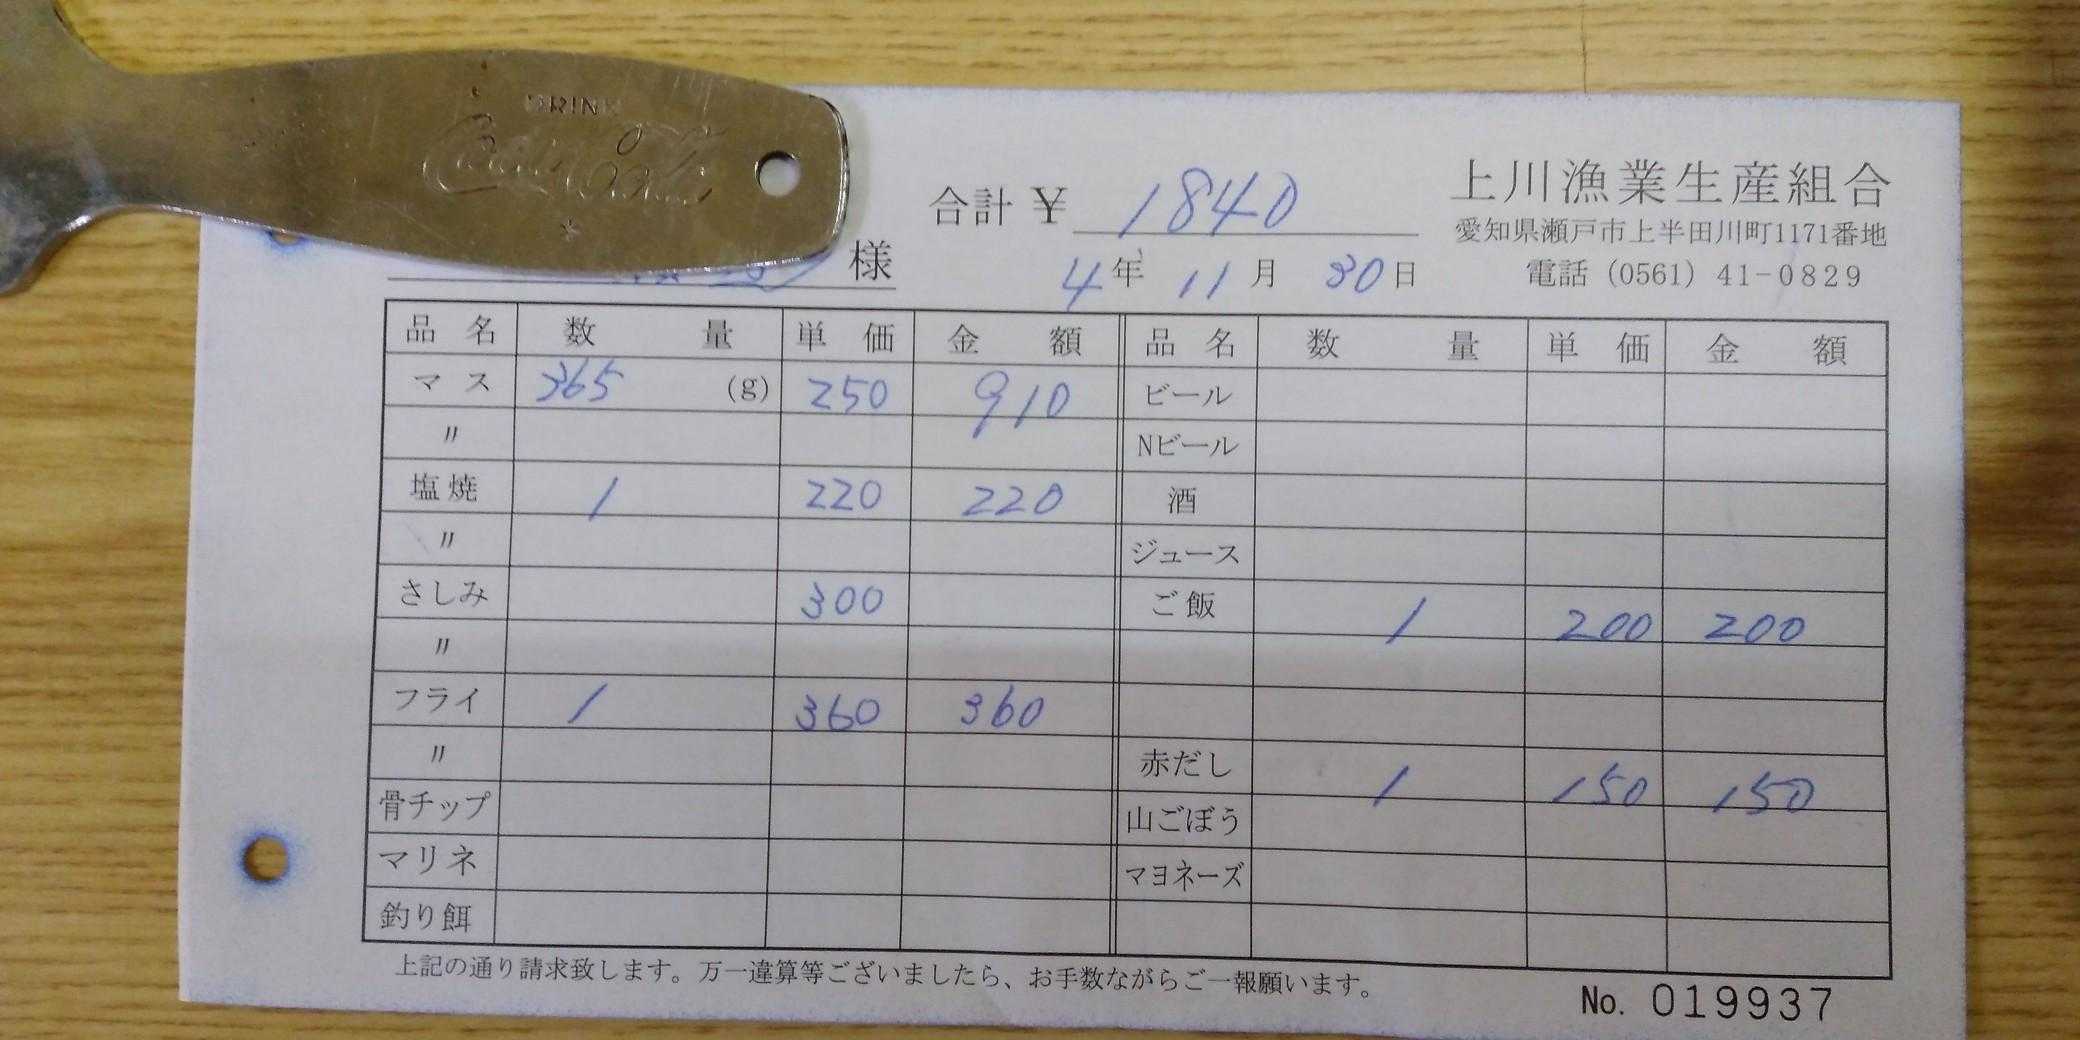 DRINK
Coca-Cola
合計 ¥ 1840
上川漁業生産組合
愛知県瀬戸市上半田川町1171番地
電話 (0561) 41-0829
様
4年 11月 30日
品名 数量 単価 金額 品名 数量 単価 金額
マス 365 (g) 250 910 ビール
〃 Nビール
塩焼 1 220 220 酒
〃 ジュース
さしみ 300 ご飯 1 200 200
〃
フライ 1 360 360
〃 赤だし 1 150 150
骨チップ 山ごぼう
マリネ マヨネーズ
釣り餌
上記の通り請求致します。万一違算等ございましたら、お手数ながらご一報願います。
No. 019937